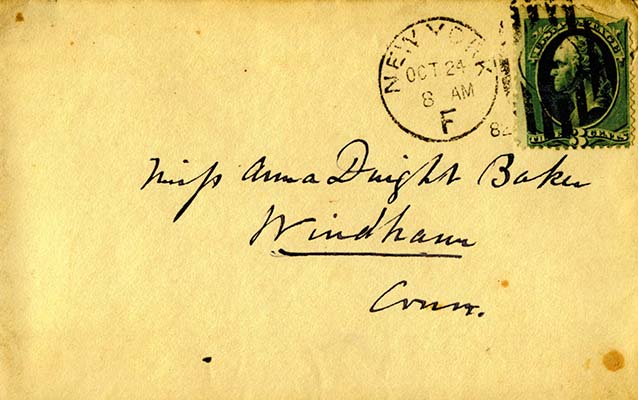 NEW YORK
OCT 24
8 AM
F
82
Miss Anna Dwight Baker
Windham
Conn.